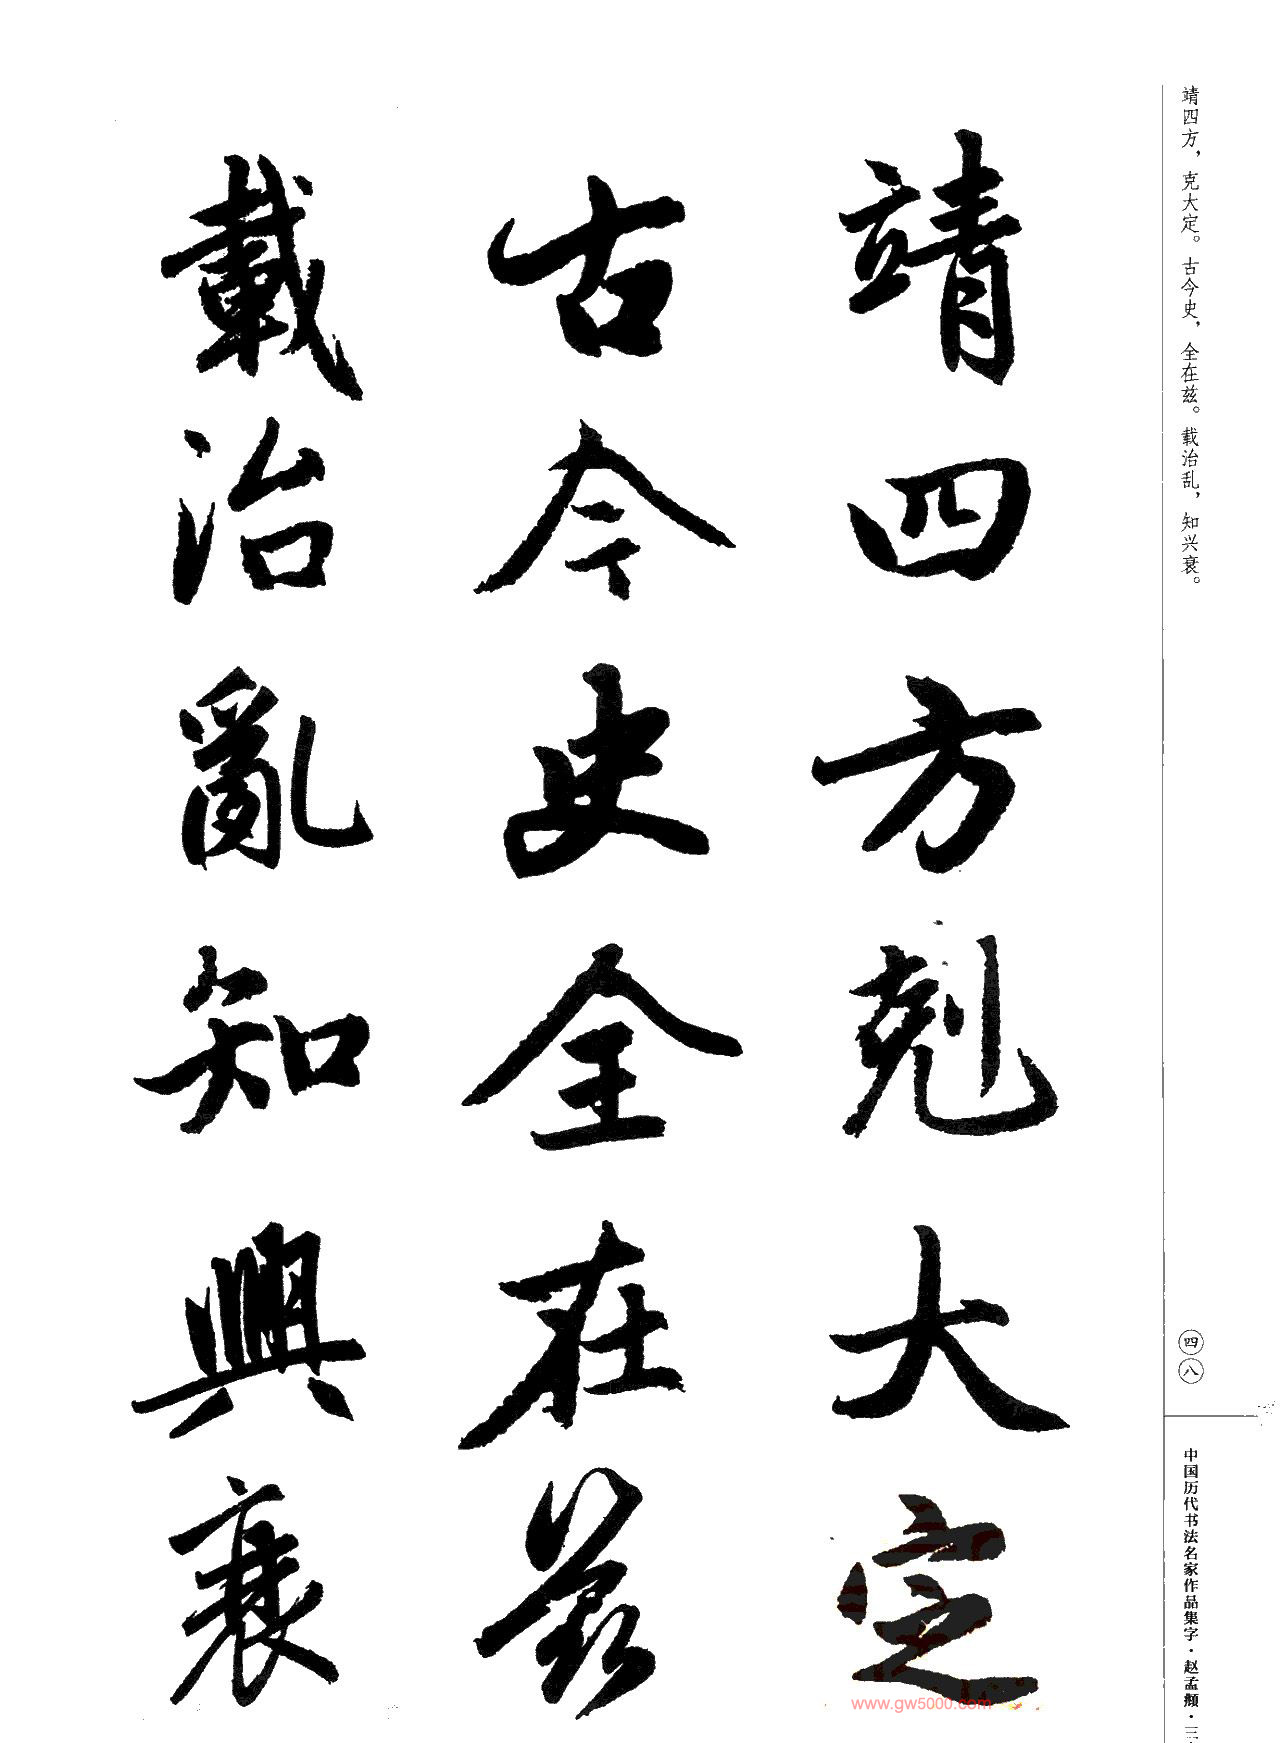 靖四方，克大定。古今史，全在兹。载治乱，知兴衰。
四八
中国历代书法名家作品集字·赵孟頫·三
靖四方剋大定
古今史全在兹
載治亂知興衰
www.gw5000.com